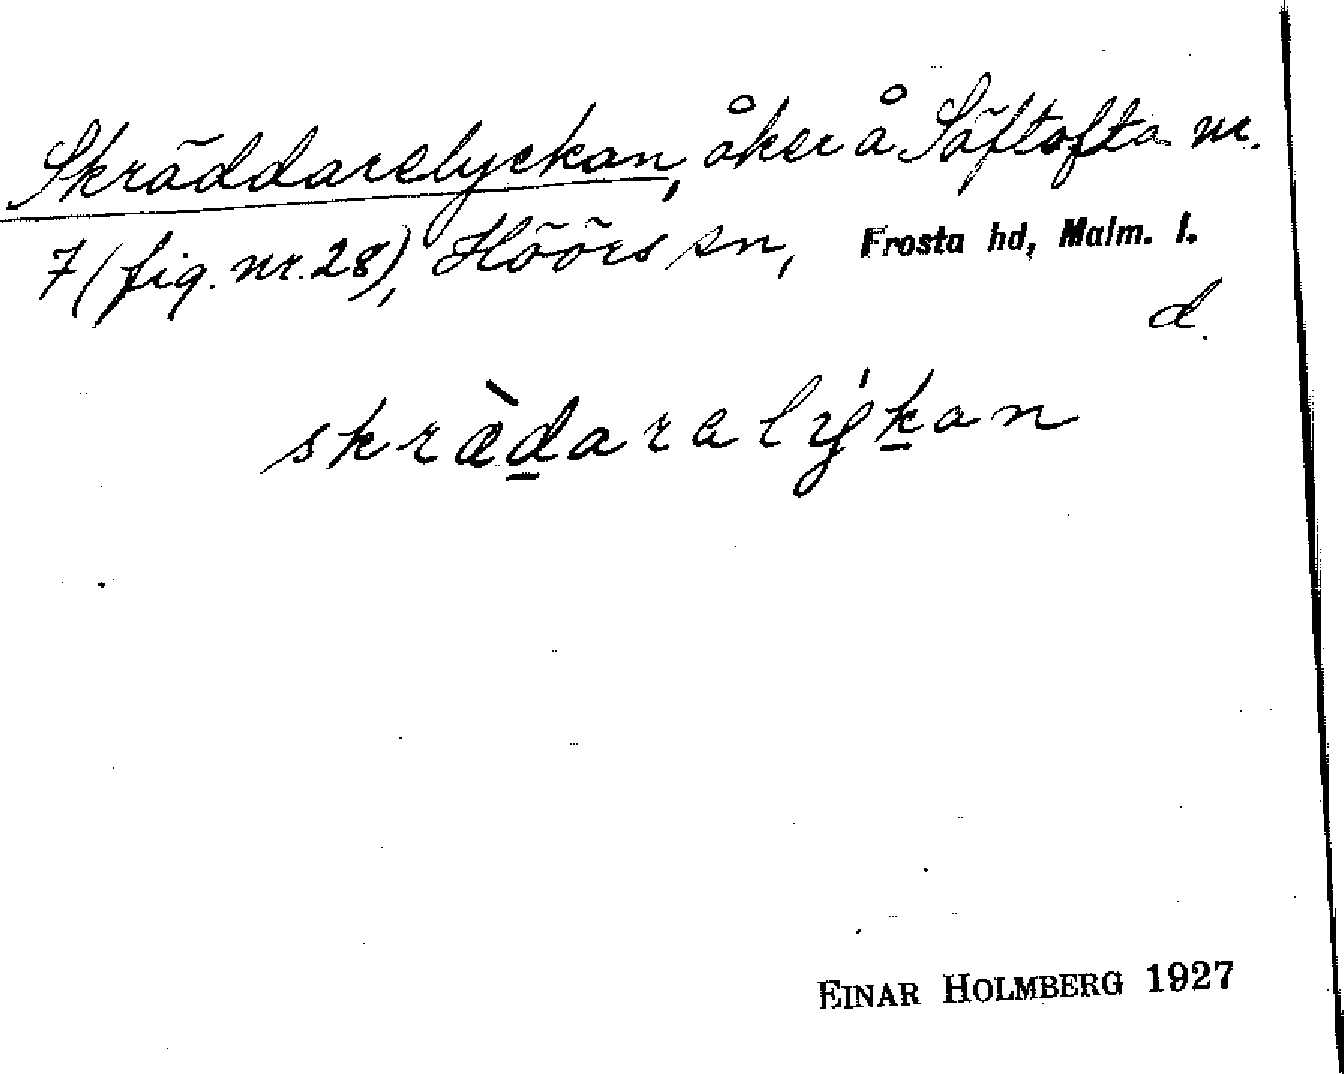 Skräddarelyckan, åker å Säftofta nr.
7 (fig. nr. 28), Höörs sn, Frosta hd, Malm. l.
d.
skræ̀d̲aralýk̲an
EINAR HOLMBERG 1927